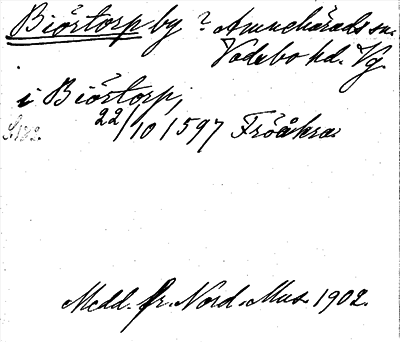 Biörtorp by ? Amnehärads sn.
Vadsbo hd. Vg.
i Biörtorp,
22/10 1597 Fröåkra
Medd. fr. Nord. Mus. 1902.